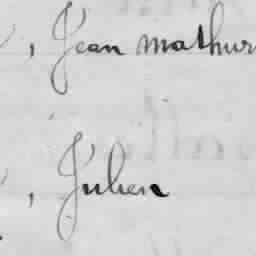 , Jean Mathur
, Julien